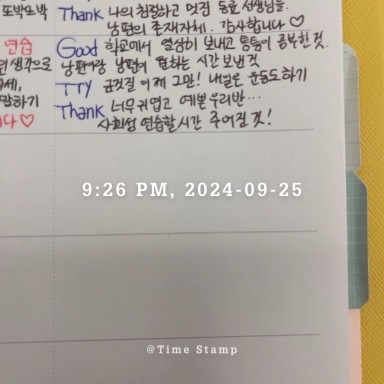 또박또박
Thank 나의 친절하고 멋짐 동료 선생님들.
남편의 존재자체. 감사합니다 ♡
연습
Good 학교에서 열심히 보내고 틈틈이 공부한 것.
생각으로
남편이랑 남편이 원하는 시간 보낸 것
TTY 군것질 이제 그만! 내일은 운동도하기
말하기
Thank 너무귀엽고 예쁜우리반...
다♡
사회성 연습할시간 주어진 것!
9:26 PM, 2024-09-25
@Time Stamp